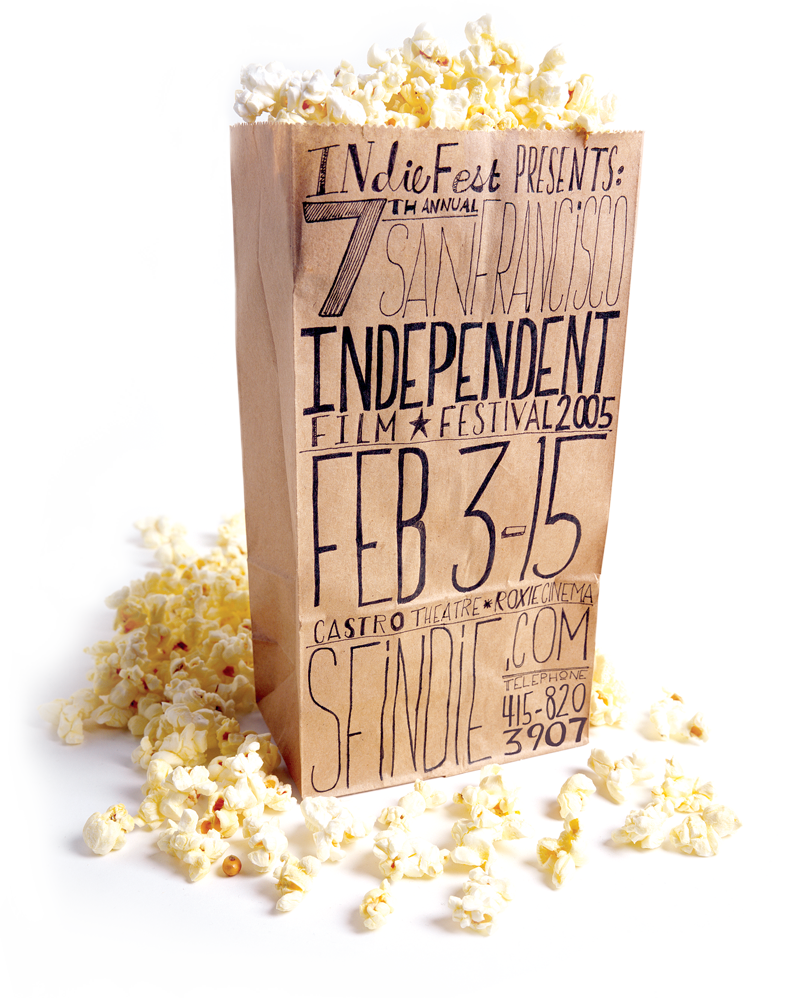 INdieFest PRESENTS:
7TH ANNUAL
SANFRANCiSCO
INDEPENDENT
FILM ★ FESTIVAL 2005
FEB 3-15
CASTRO THEATRE * ROXIE CINEMA
SFiNDiE.COM
TELEPHONE
415-820
3907